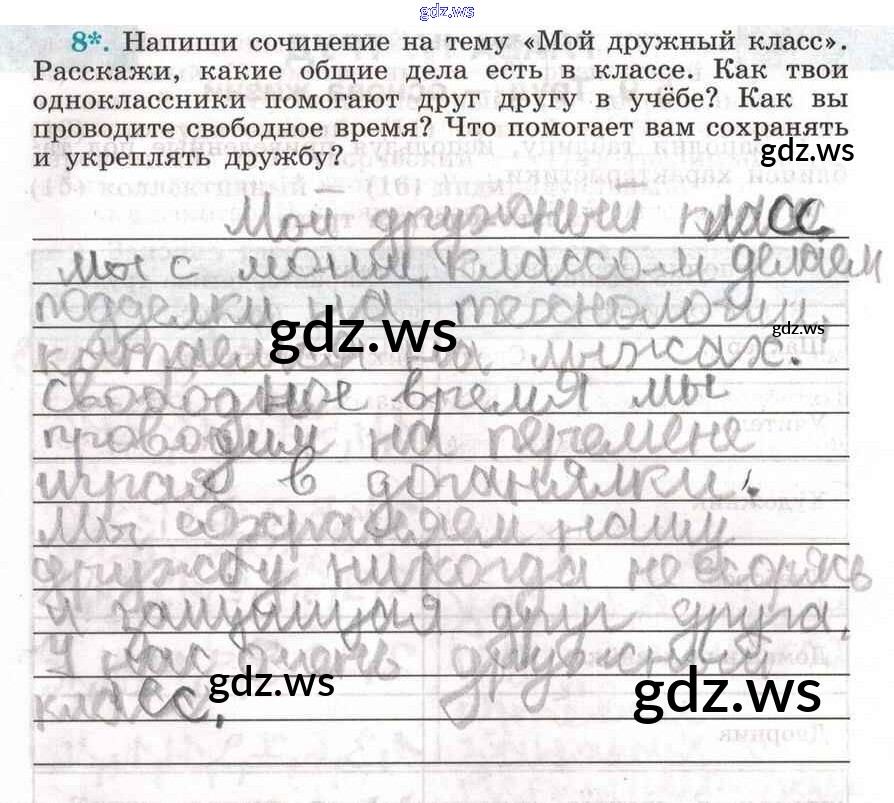 gdz.ws
8*. Напиши сочинение на тему «Мой дружный класс».
Расскажи, какие общие дела есть в классе. Как твои
одноклассники помогают друг другу в учёбе? Как вы
проводите свободное время? Что помогает вам сохранять
и укреплять дружбу?
gdz.ws
Мой дружный класс
Мы с моим классом делаем
подделки на технологии,
gdz.ws
gdz.ws
катаемся на лыжах.
Свободное время мы
проводим на перемене
играя в догонялки.
Мы сохраняем нашу
дружбу никогда не сорясь
и защищая друг друга.
У нас очень дружный
класс.
gdz.ws
gdz.ws